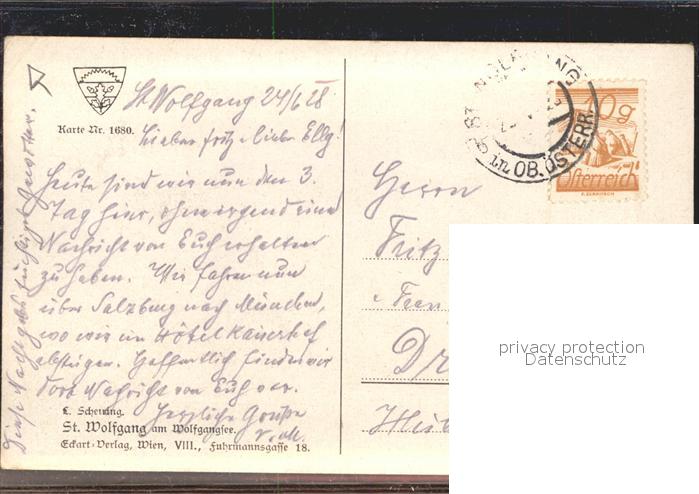 St. Wolfgang 24/6 28
Karte Nr. 1680.
Lieber Fritz u. liebe Elly!
Heute sind wir nun den 3.
Tag hier, ohne irgend eine
Nachricht von Euch erhalten
zu haben. Wir fahren nun
über Salzburg nach München,
wo wir im Hotel Kaiserhof
absteigen. Hoffentlich finden wir
dort Nachricht von Euch vor.
Herzliche Grüße
Diese Nacht gabs
L. Scheuring.
St. Wolfgang am Wolfgangsee.
Eckart-Verlag, Wien, VIII., Fuhrmannsgasse 18.
ST. WOLFGANG
in OB. ÖSTERR.
10g
Österreich
Herrn
Fritz
Dr
privacy protection
Datenschutz